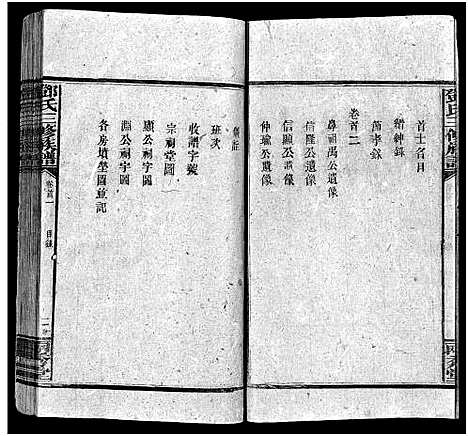 鄧氏三修族譜
首士名目
縉紳錄
節孝錄
卷首二
鼻祖禹公遺像
信隆公遺像
信顯公遺像
仲瑜公遺像
班次
收譜字號
宗祠堂圖
顯公祠宇圖
淵公祠宇圖
各房墳塋圖並記
鄧氏三修族譜
卷首一
目錄